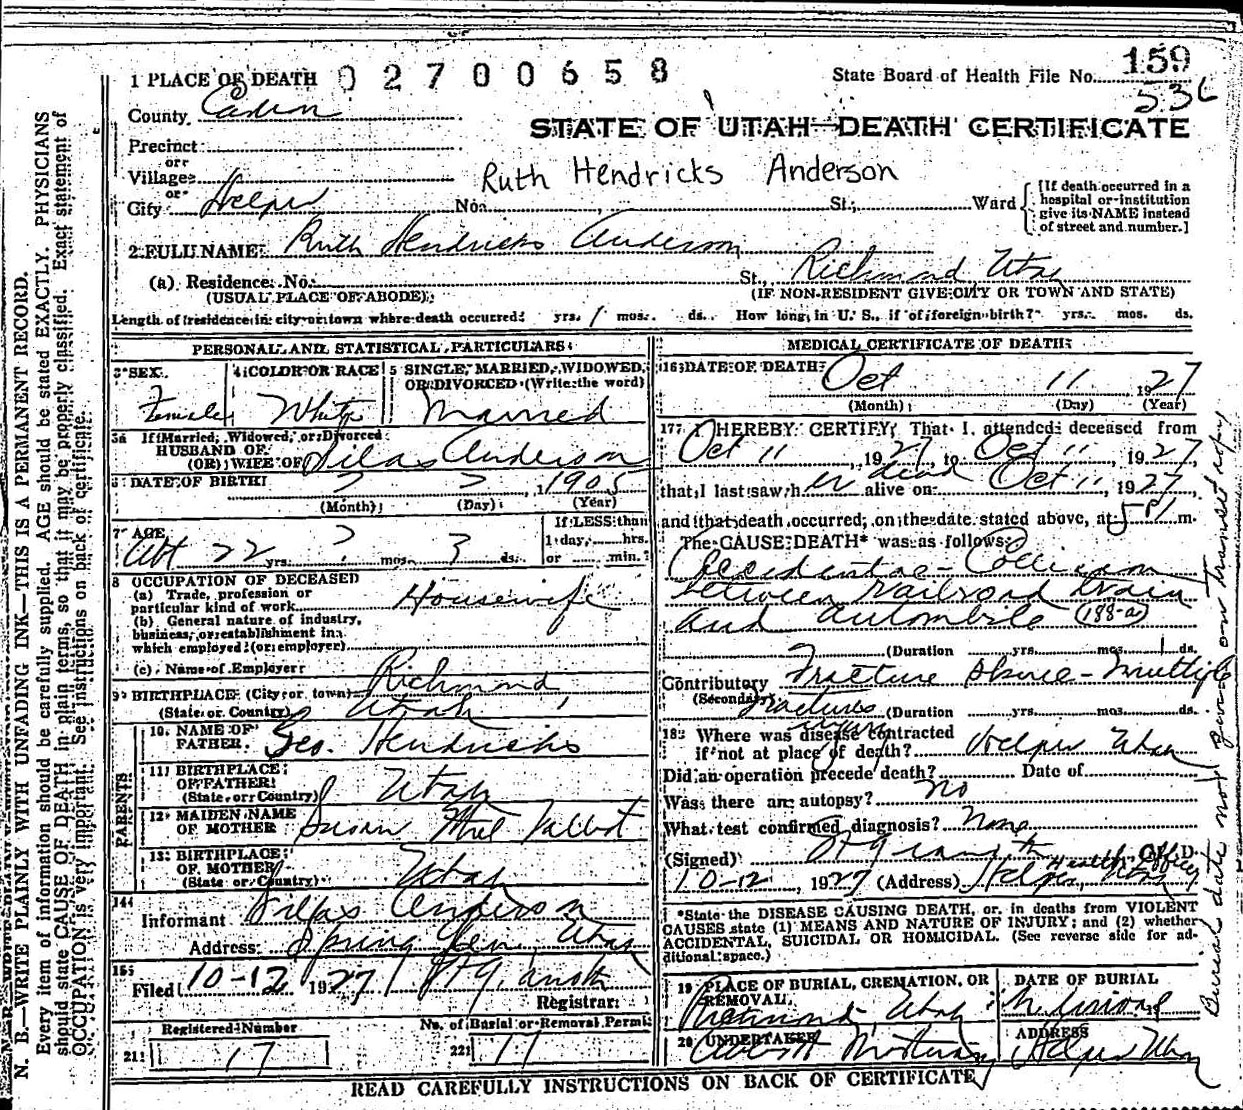 1 PLACE OF DEATH 02700658
State Board of Health File No. 159
536
County
STATE OF UTAH—DEATH CERTIFICATE
Precinct
or
Village
Ruth Hendricks Anderson
or
City Helper No. St., Ward
[If death occurred in a hospital or institution give its NAME instead of street and number.]
2 FULL NAME Ruth Hendricks Anderson
(a) Residence. No. St., Richmond Utah
(USUAL PLACE OF ABODE)
(IF NON-RESIDENT GIVE CITY OR TOWN AND STATE)
Length of residence in city or town where death occurred yrs. 1 mos. ds. How long in U. S., if of foreign birth? yrs. mos. ds.
PERSONAL AND STATISTICAL PARTICULARS
3 SEX
Female
4 COLOR OR RACE
White
5 SINGLE, MARRIED, WIDOWED, OR DIVORCED (Write the word)
Married
5a If Married, Widowed, or Divorced
HUSBAND OF
(OR) WIFE OF Silas Anderson
6 DATE OF BIRTH ? ? 1905
(Month) (Day) (Year)
7 AGE
Abt 22 yrs. ? mos. ds.
If LESS than
1 day, hrs.
or min.?
8 OCCUPATION OF DECEASED
(a) Trade, profession or
particular kind of work Housewife
(b) General nature of industry,
business, or establishment in
which employed (or employer)
(c) Name of Employer
9 BIRTHPLACE (City or town) Richmond,
(State or Country) Utah
PARENTS
10 NAME OF
FATHER Geo. Hendricks
11 BIRTHPLACE
OF FATHER
(State or Country) Utah
12 MAIDEN NAME
OF MOTHER Susan Talbot
13 BIRTHPLACE
OF MOTHER
(State or Country) Utah
14
Informant Silas Anderson
Address Spring Utah
15
Filed 10-12 1927
Registrar
Registered Number
No. of Burial or Removal Permit
21 17
22 17
MEDICAL CERTIFICATE OF DEATH
16 DATE OF DEATH Oct 11 1927
(Month) (Day) (Year)
17 I HEREBY CERTIFY, That I attended deceased from
Oct 11, 1927 to Oct 11, 1927
that I last saw her dead alive on Oct 11, 1927
and that death occurred, on the date stated above, at 5 P m.
The CAUSE DEATH* was as follows:
Accidental - Collision
between railroad train
and automobile (188-a)
(Duration yrs. mos. 1 ds.
Contributory Fracture - multiple
(Secondary) fractures
(Duration yrs. mos. ds.
18 Where was disease contracted
injury
if not at place of death? Helper Utah
Did an operation precede death? Date of
Was there an autopsy? no
What test confirmed diagnosis? None
(Signed) M. D.
Health Officer
10-12, 1927 (Address) Helper, Utah
*State the DISEASE CAUSING DEATH, or in deaths from VIOLENT
CAUSES state (1) MEANS AND NATURE OF INJURY; and (2) whether
ACCIDENTAL, SUICIDAL OR HOMICIDAL. (See reverse side for additional space.)
19 PLACE OF BURIAL, CREMATION, OR
REMOVAL
Richmond, Utah
DATE OF BURIAL
20 UNDERTAKER
Mortuary
ADDRESS
Helper Utah
READ CAREFULLY INSTRUCTIONS ON BACK OF CERTIFICATE
N. B.—WRITE PLAINLY WITH UNFADING INK—THIS IS A PERMANENT RECORD.
Every item of information should be carefully supplied. AGE should be stated EXACTLY. PHYSICIANS
should state CAUSE OF DEATH in plain terms, so that it may be properly classified. Exact statement of
OCCUPATION is very important. See instructions on back of certificate.
Burial date not given on transit copy